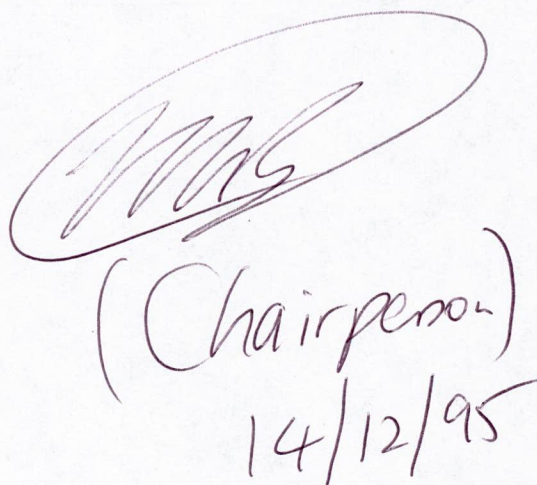 (Chairperson)
14/12/95